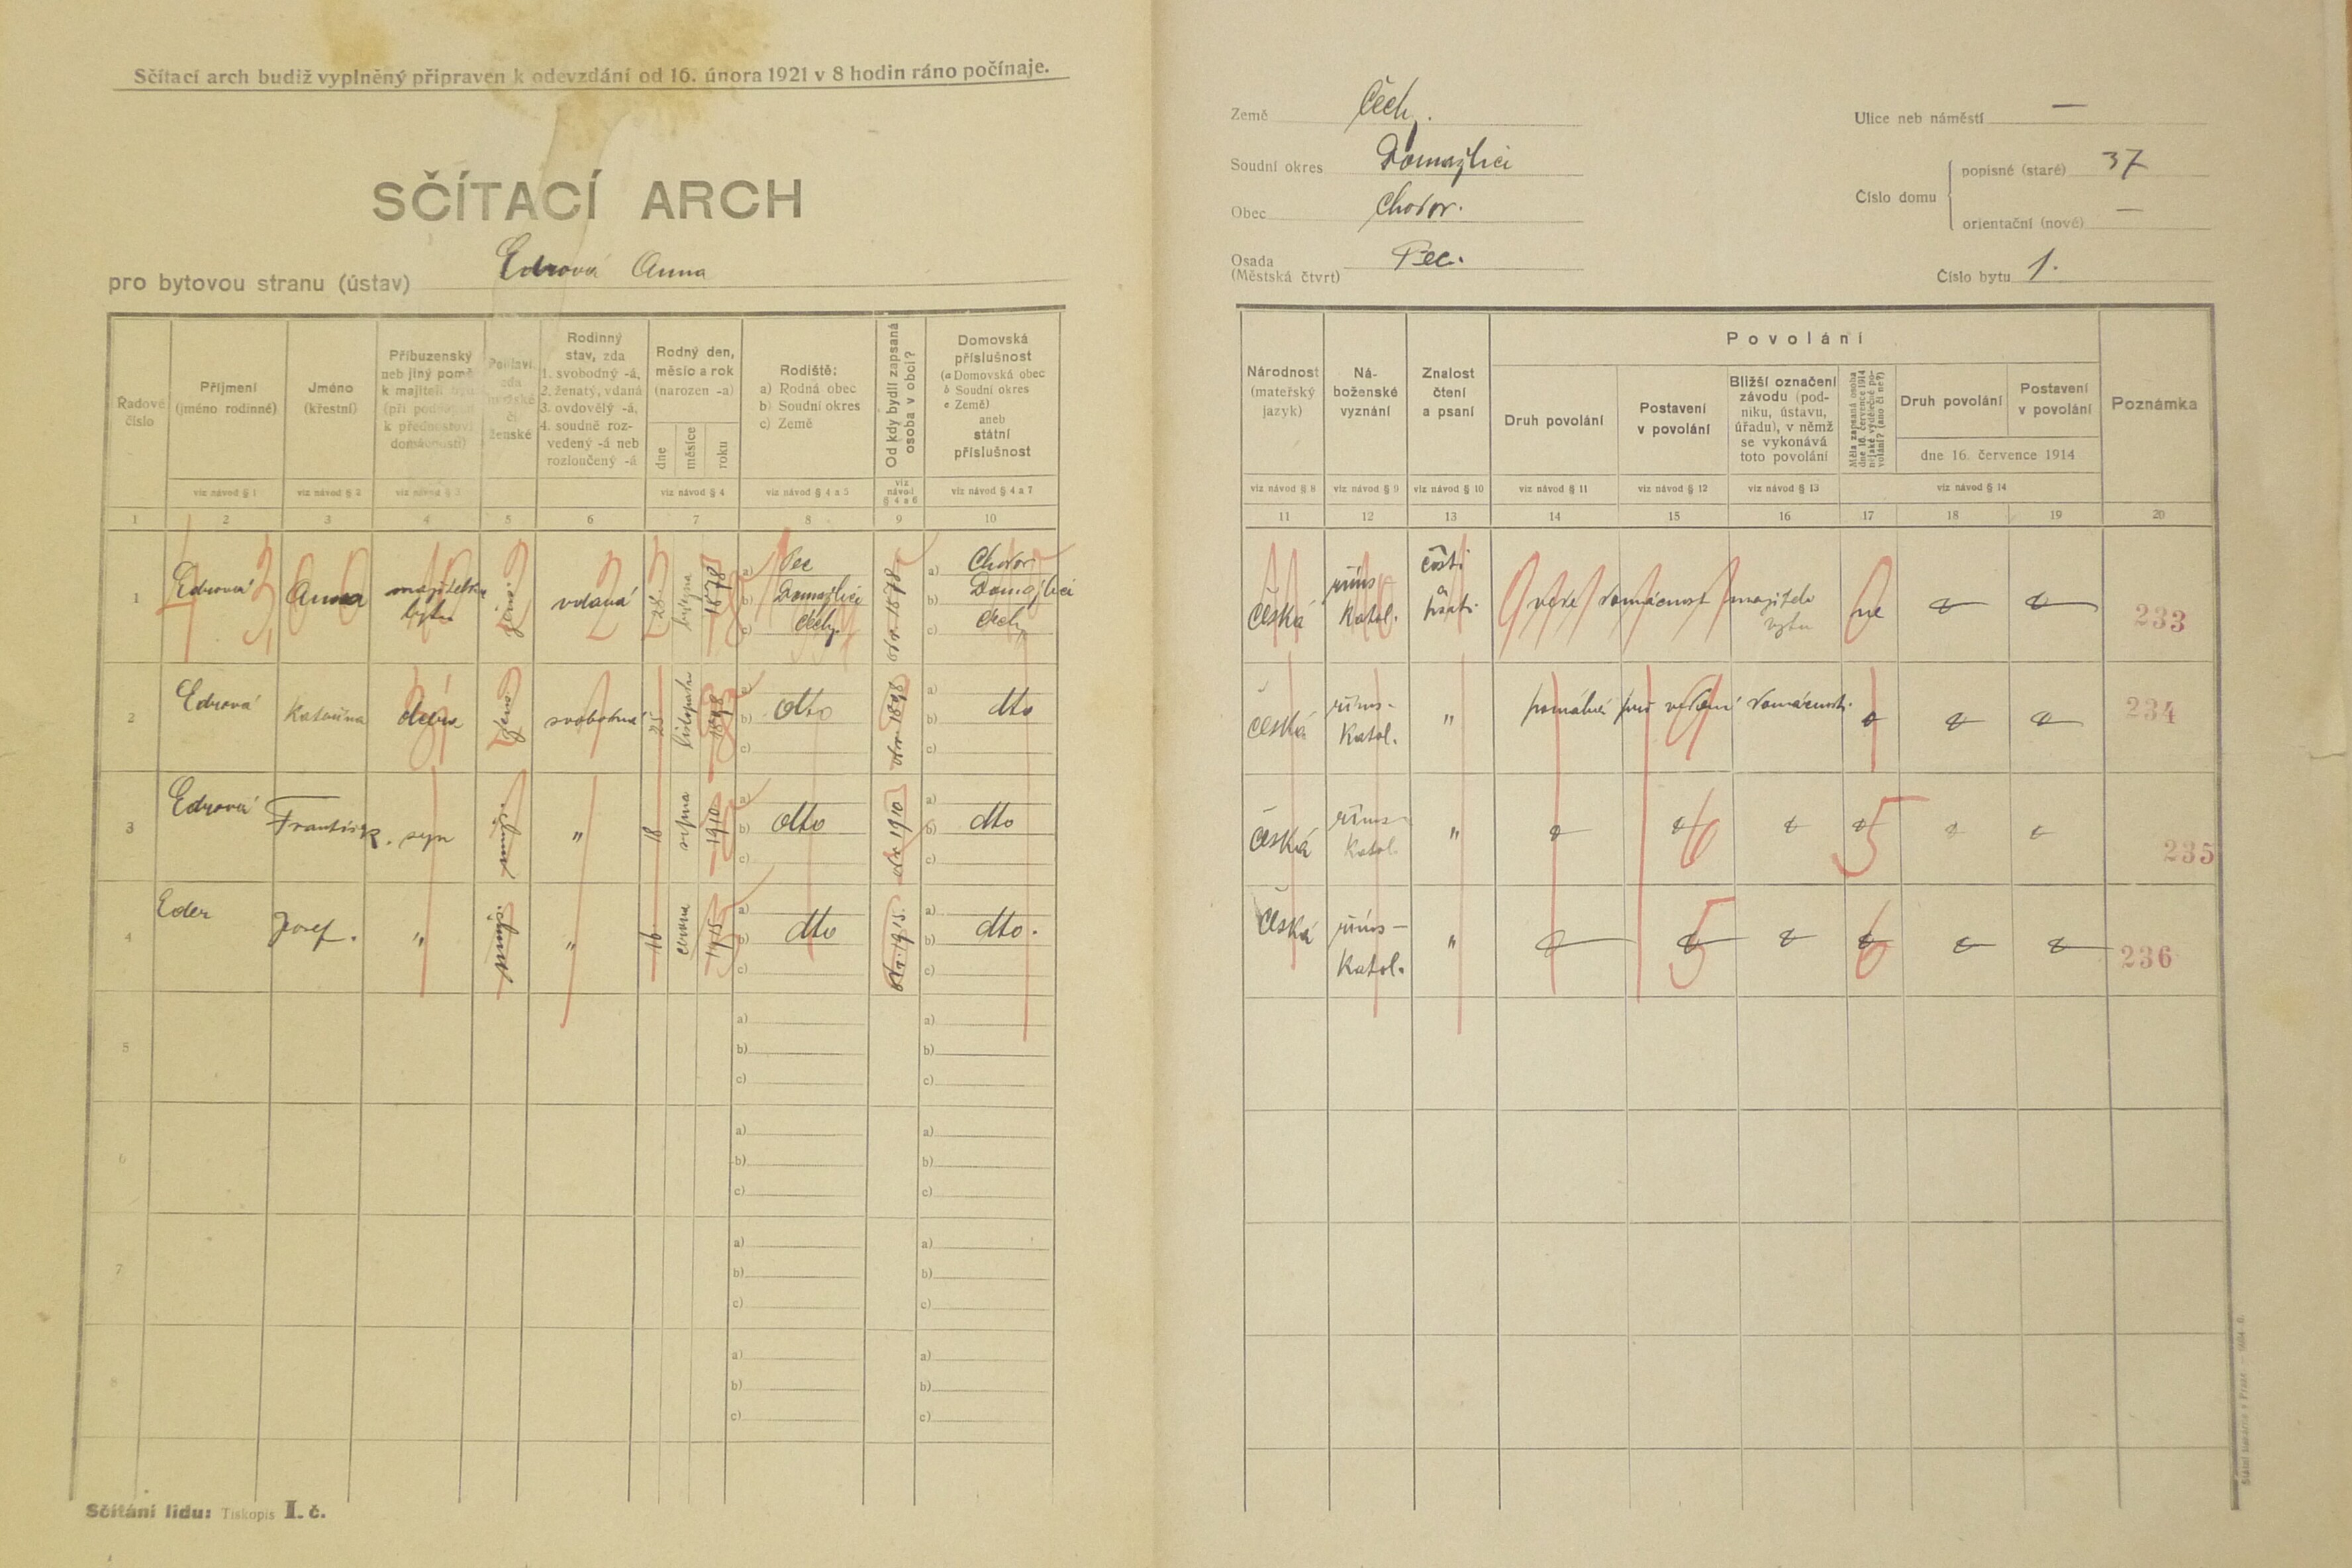 Sčítací arch budiž vyplněný připraven k odevzdání od 16. února 1921 v 8 hodin ráno počínaje.
SČÍTACÍ ARCH
pro bytovou stranu (ústav) Edrová Anna
Země Čechy.
Soudní okres Domažlici
Obec Chodov.
Osada Pec.
(Městská čtvrt)
Ulice neb náměstí —
Číslo domu
popisné (staré) 37
orientační (nové) —
Číslo bytu 1.
Řadové číslo
Příjmení
(jméno rodinné)
Jméno
(křestní)
Příbuzenský
neb jiný poměr
k majiteli bytu
(při podnájmu
k přednostovi
domácnosti)
Pohlaví,
zda
mužské
či
ženské
Rodinný
stav, zda
1. svobodný -á,
2. ženatý, vdaná
3. ovdovělý -á,
4. soudně roz-
vedený -á neb
rozloučený -á
Rodný den,
měsíc a rok
(narozen -a)
dne
měsíce
roku
Rodiště:
a) Rodná obec
b) Soudní okres
c) Země
Od kdy bydlí zapsaná
osoba v obci?
Domovská
příslušnost
(a Domovská obec
b Soudní okres
c Země)
aneb
státní
příslušnost
viz návod § 1
viz návod § 2
viz návod § 3
viz návod § 4
viz návod § 4 a 5
viz návod § 4 a 6
viz návod § 4 a 7
1 2 3 4 5 6 7 8 9 10
Národnost
(mateřský
jazyk)
Ná-
boženské
vyznání
Znalost
čtení
a psaní
Povolání
Druh povolání
Postavení
v povolání
Bližší označení
závodu (pod-
niku, ústavu,
úřadu), v němž
se vykonává
toto povolání
Měla zapsaná osoba
dne 16. července 1914
nějaké výdělečné po-
volání? (ano či ne?)
Druh povolání
Postavení
v povolání
dne 16. července 1914
Poznámka
viz návod § 8
viz návod § 9
viz návod § 10
viz návod § 11
viz návod § 12
viz návod § 13
viz návod § 14
11 12 13 14 15 16 17 18 19 20
1 Edrová Anna majitelka bytu žens. vdaná 28. března 1878
a) Pec
b) Domažlici
c) Čechy
od r. 1878
a) Chodov
b) Domažlici
c) Čechy
Česká řims- katol. čísti a psáti vede domácnost majitele bytu ne 233
2 Edrová Kateřina dcera žens. svobodná 25 listopadu 1898 a) b) dto c) od r. 1898 a) b) dto c)
Česká řims- katol. " pomáhá při vedení domácnosti. 234
3 Edrová František. syn mužs. " 18 srpna 1910 a) b) dto c) od r. 1910 a) b) dto c)
Česká řims- katol. " 235
4 Eder Josef. " mužs. " 16 1915 a) b) dto c) od r. 1915. a) b) dto. c)
Česká řims- katol. " 236
5 a) b) c) a) b) c)
6 a) b) c) a) b) c)
7 a) b) c) a) b) c)
8 a) b) c) a) b) c)
Sčítání lidu: Tiskopis I. č.